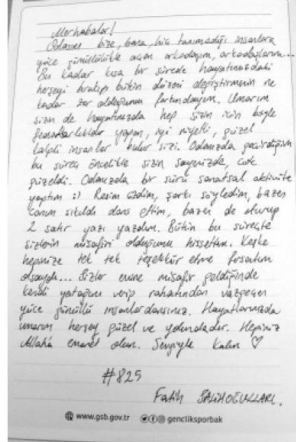 Merhabalar!
Odasını bize, bana, hiç tanımadığı insanlara
yüce gönüllülükle açan arkadaşım, arkadaşlarım...
Bu kadar kısa bir sürede hayatınızdaki
herşeyi bırakıp bütün düzeni değiştirmenin ne
kadar zor olduğunun farkındayım. Umarım
sizin de hayatınızda hep sizin için böyle
fedakarlıklar yapan, iyi niyetli, güzel
kalpli insanlar bulur sizi. Odanızda geçirdiğim
bu süreç öncelikle sizin sayenizde, çok
güzeldi. Odanızda bir sürü sanatsal aktivite
yaptım :) Resim çizdim, şarkı söyledim, bazen
canım sıkıldı dans ettim, bazen de oturup
2 satır yazı yazdım. Bütün bu süreçte
sizlerin misafiri olduğumu hissettim. Keşke
hepinize tek tek teşekkür etme fırsatım
olsaydı... Sizler evine misafir geldiğinde
kendi yatağını verip rahatından vazgeçen
yüce gönüllü insanlardansınız. Hayatlarınızda
umarım herşey güzel ve yolundadır. Hepiniz
Allaha emanet olun. Sevgiyle kalın ♡
#825
Fatih SALİHOĞULLARI.
www.gsb.gov.tr gencliksporbak